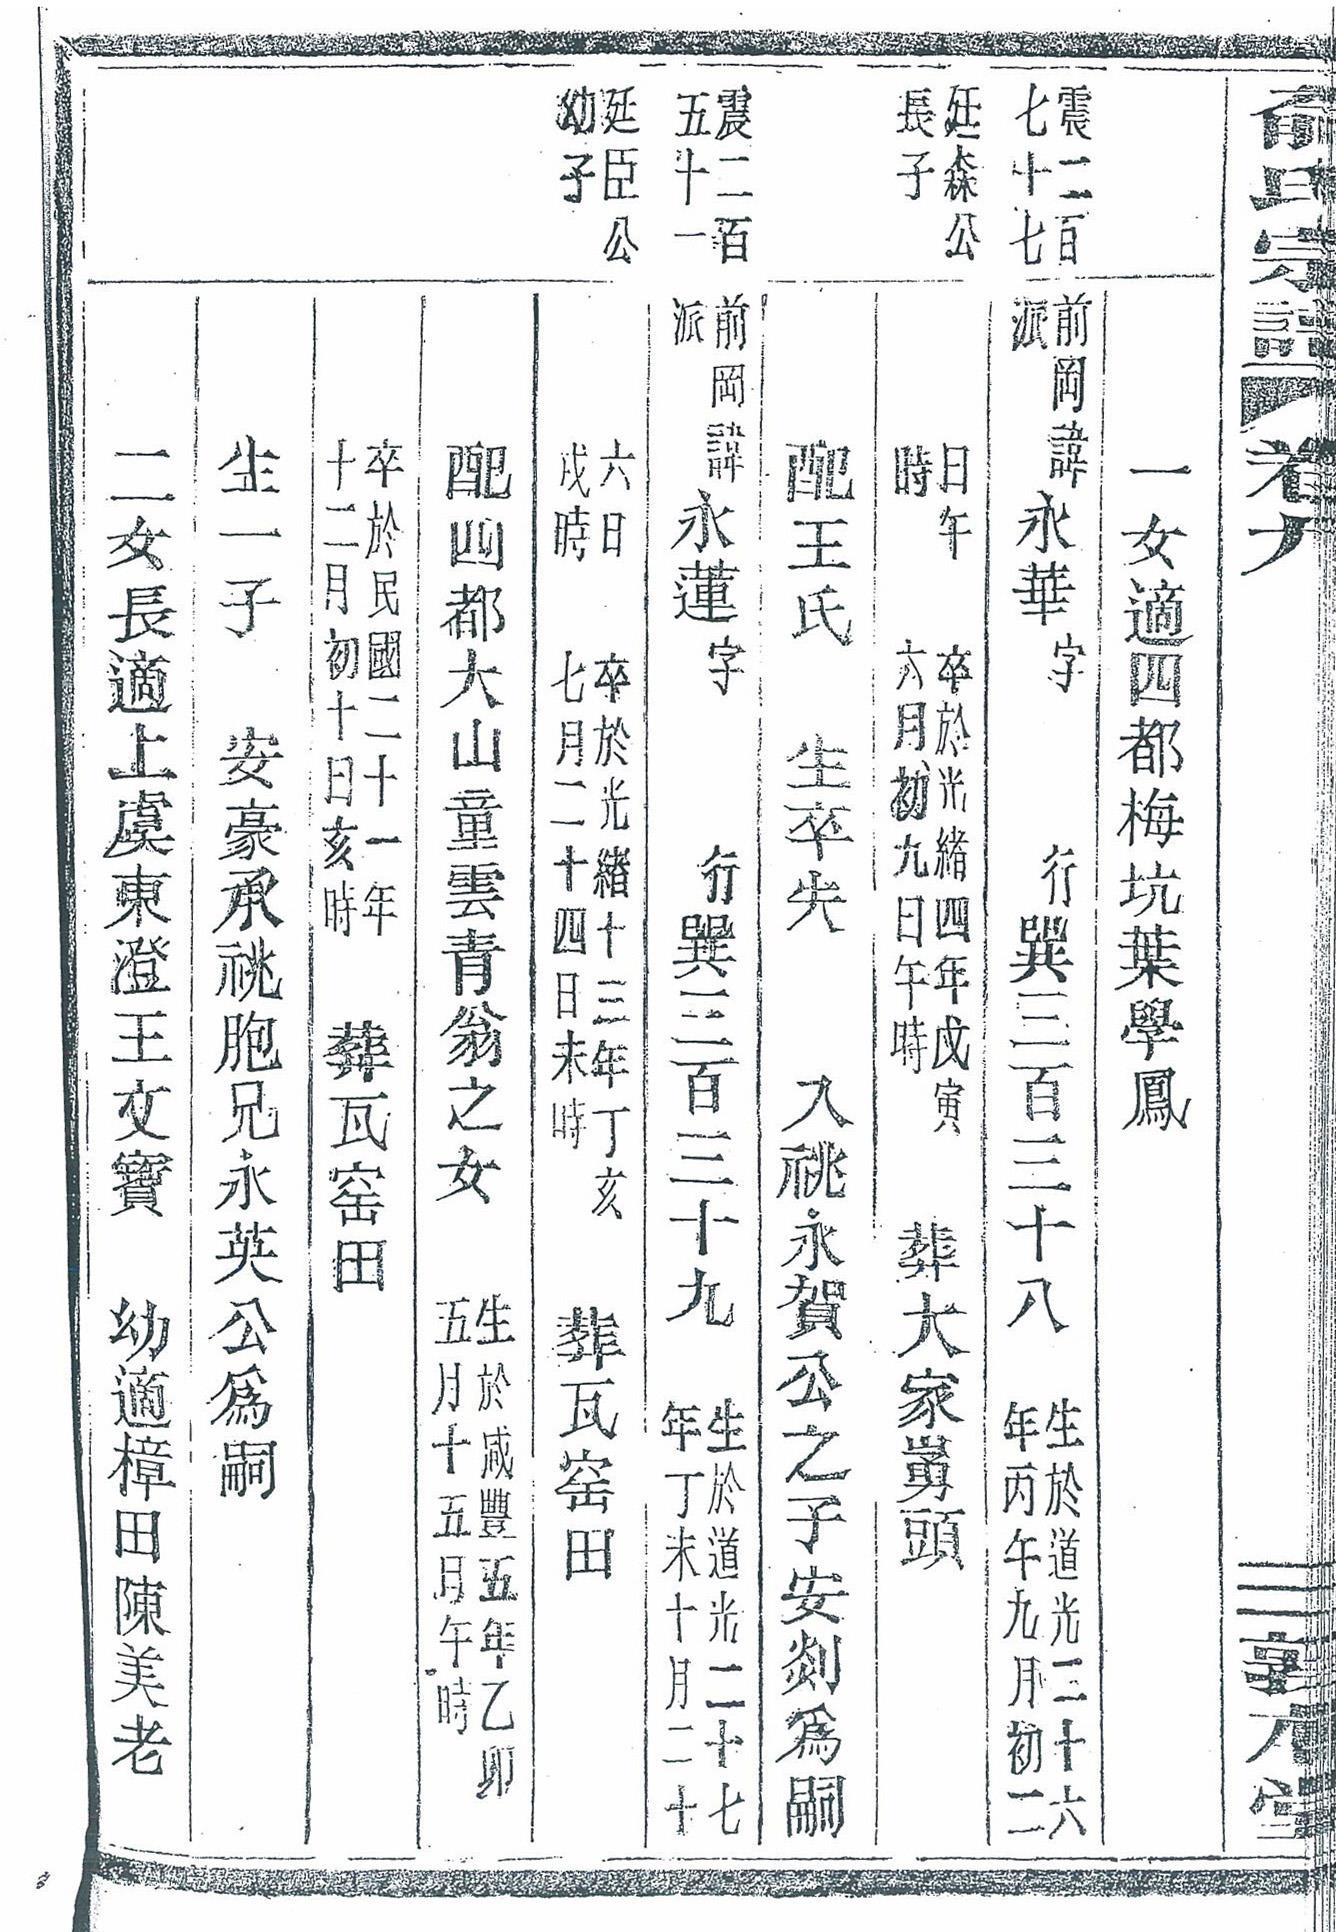 俞氏宗譜 卷九 敦本堂
一女適四都梅坑葉學鳳
震二百
七十七
前岡諱
派
永華字 行巽三百三十八
生於道光二十六
年丙午九月初二
廷森公
長子
日午
時
卒於光緒四年戊寅
六月初九日午時
葬大家嶴頭
配王氏 生卒失 入祧永賀公之子安剡為嗣
震二百
五十一
前岡諱
派
永蓮字 行巽三百三十九
生於道光二十七
年丁未十月二十
廷臣公
幼子
六日
戌時
卒於光緒十三年丁亥
七月二十四日未時
葬瓦窑田
配四都大山童雲青翁之女
生於咸豐五年乙卯
五月十五日午時
卒於民國二十一年
十二月初十日亥時
葬瓦窑田
生一子 安豪承祧胞兄永英公為嗣
二女長適上虞東澄王文寶 幼適樟田陳美老